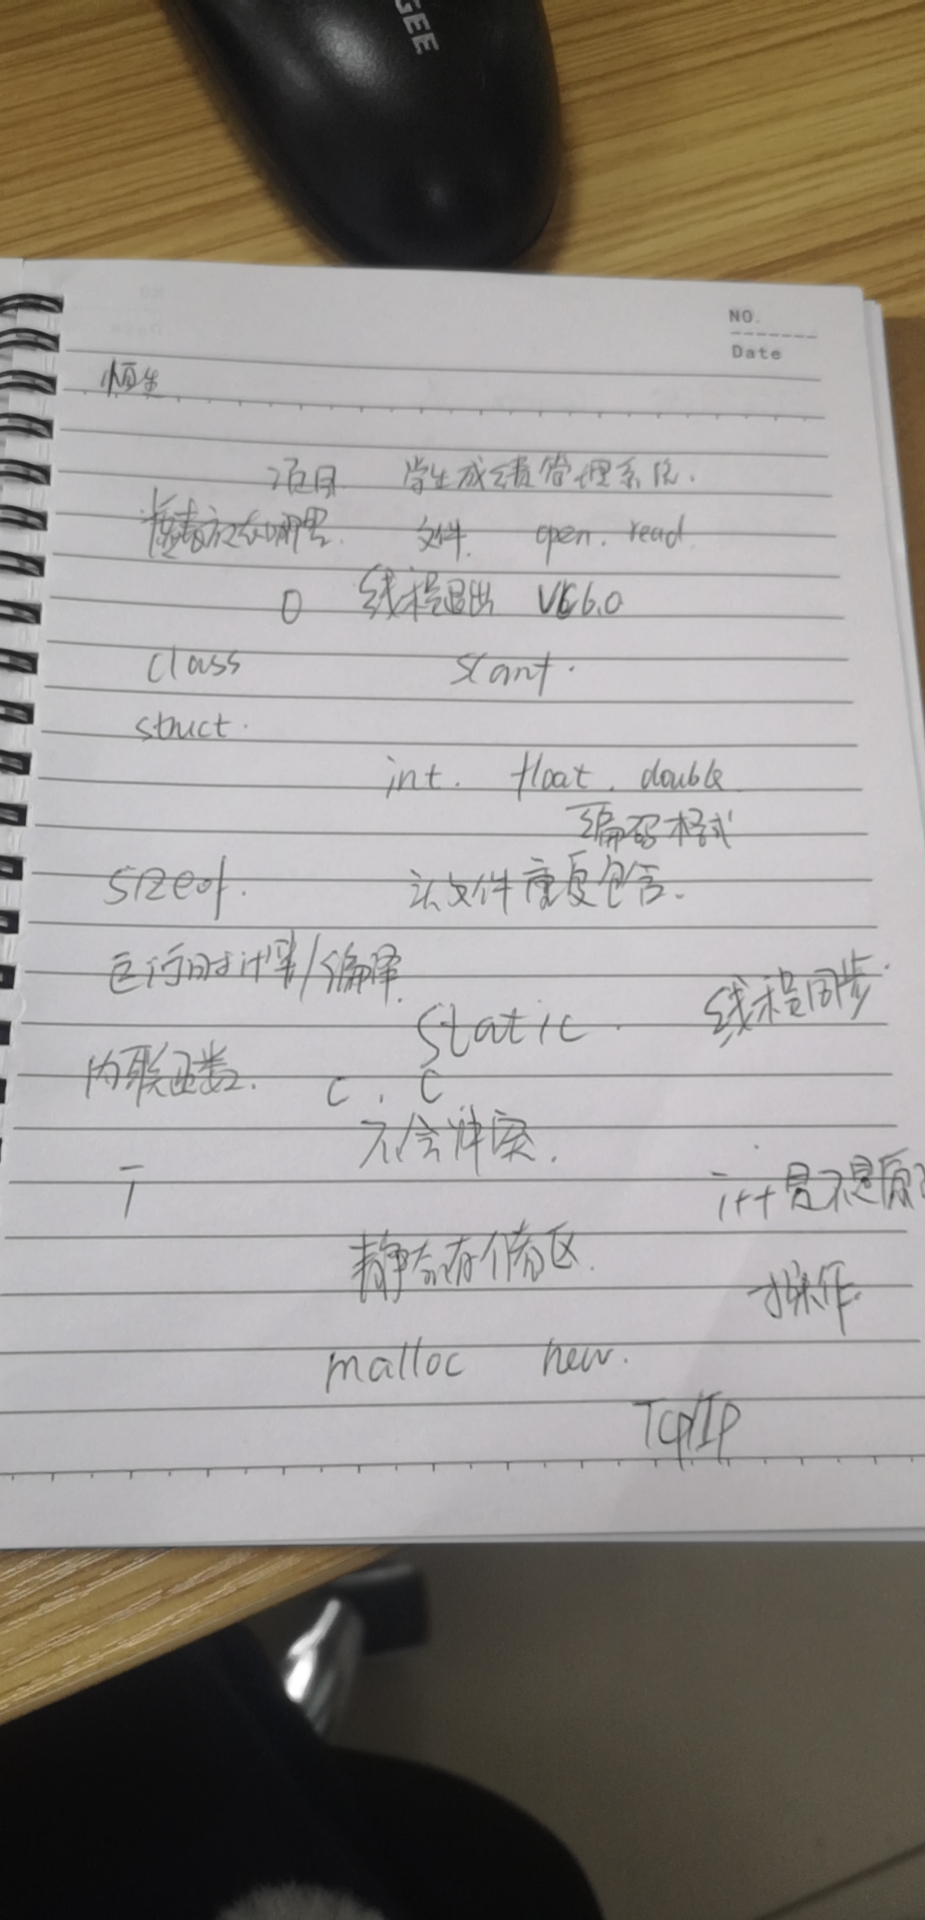 GEE
NO.
Date
恒生
项目 学生成绩管理系统.
放在哪里. 文件. open. read
0 线程退出 VC6.0
class
struct.
int. float. double
编码格式
sizeof. 头文件重复包含.
运行时计算/编译.
static. 线程同步.
内联函数. C . C
不会冲突.
i++是不是原子
静态存储区.
操作.
malloc new.
TCP/IP